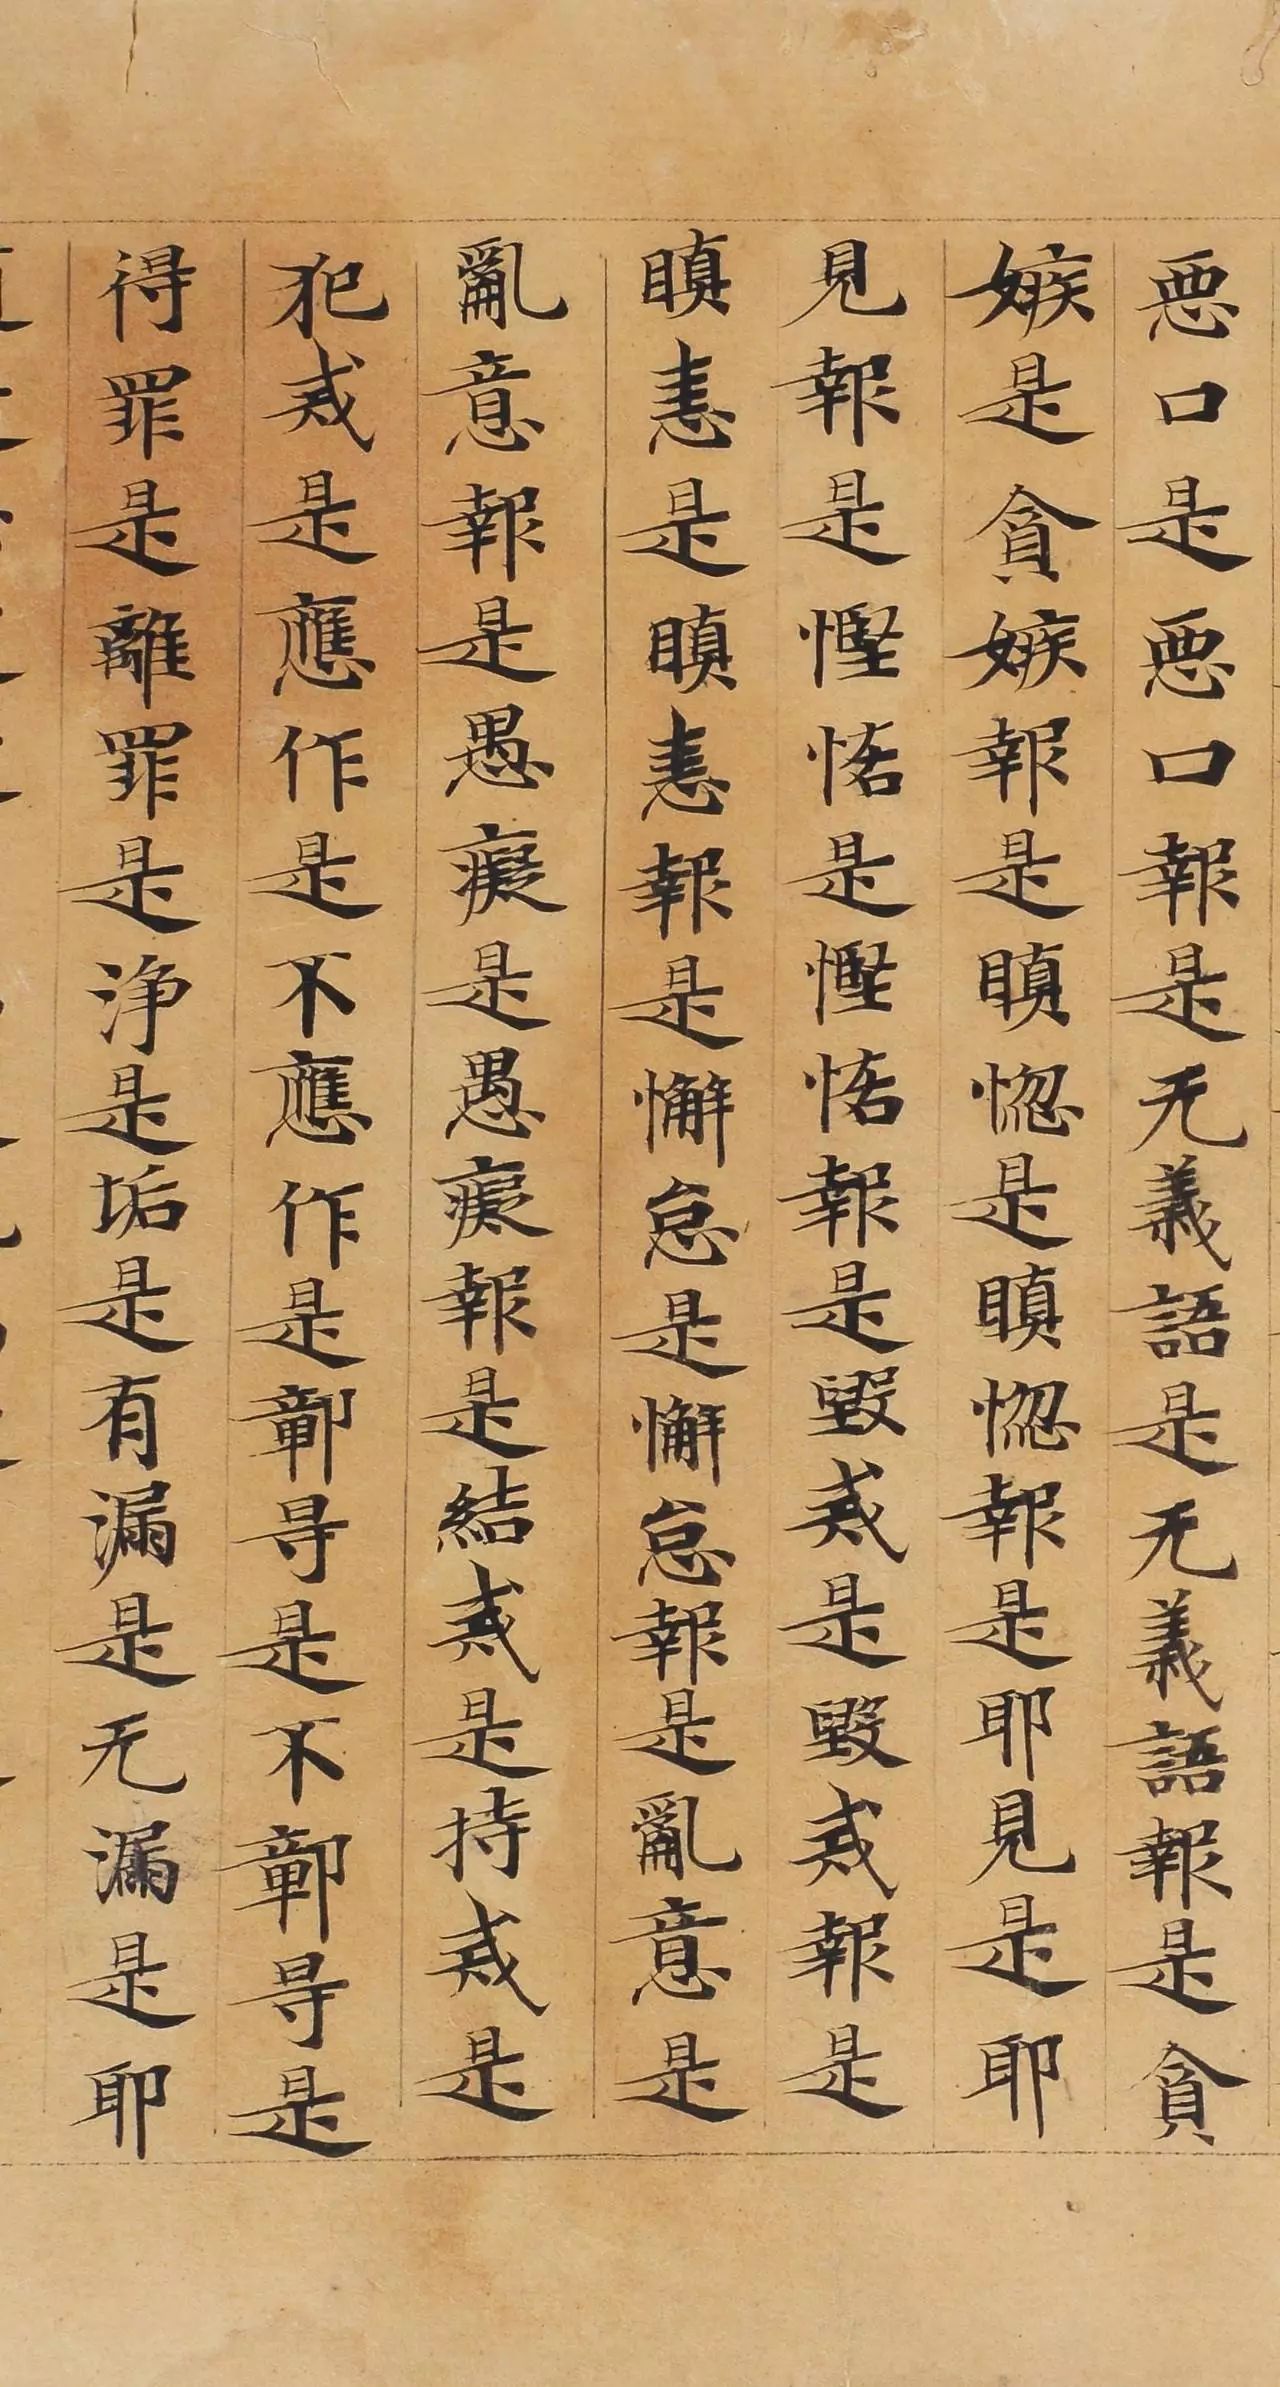 悪口是悪口報是无義語是无義語報是貪
嫉是貪嫉報是瞋惚是瞋惚報是耶見是耶
見報是慳悋是慳悋報是毀戒是毀戒報是
瞋恚是瞋恚報是懈怠是懈怠報是亂意是
亂意報是愚癡是愚癡報是結戒是持戒是
犯戒是應作是不應作是鄣㝵是不鄣㝵是
得罪是離罪是淨是垢是有漏是无漏是耶